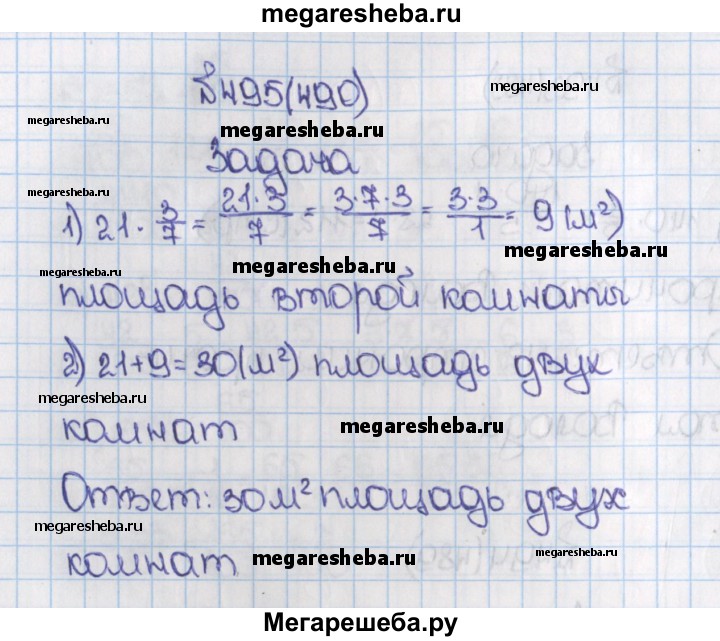 megaresheba.ru
№495(490)
megaresheba.ru
megaresheba.ru
megaresheba.ru
Задача
megaresheba.ru
1) 21 · 3/7 = 21·3/7 = 3·7·3/7 = 3·3/1 = 9 (м²)
megaresheba.ru
megaresheba.ru
megaresheba.ru
площадь второй комнаты
2) 21+9=30(м²) площадь двух
megaresheba.ru
комнат
megaresheba.ru
Ответ: 30м² площадь двух
megaresheba.ru
комнат
megaresheba.ru
megaresheba.ru
Мегарешеба.ру